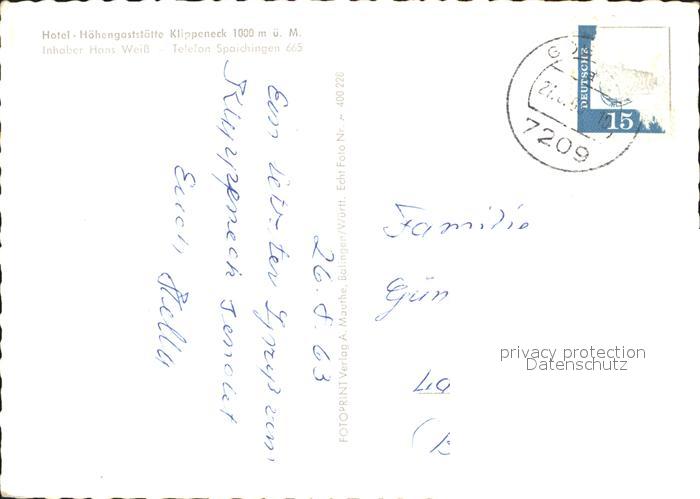 Hotel - Höhengaststätte Klippeneck 1000 m ü. M.
Inhaber Hans Weiß - Telefon Spaichingen 665
26.8.63
Ein letzter Gruß vom
Klippeneck sendet
Euch, Stella
FOTOPRINT Verlag A. Mauthe, Balingen/Württ. Echt Foto Nr. 400 228
DEUTSCHE
15
7209
Familie
Gün
privacy protection
Datenschutz